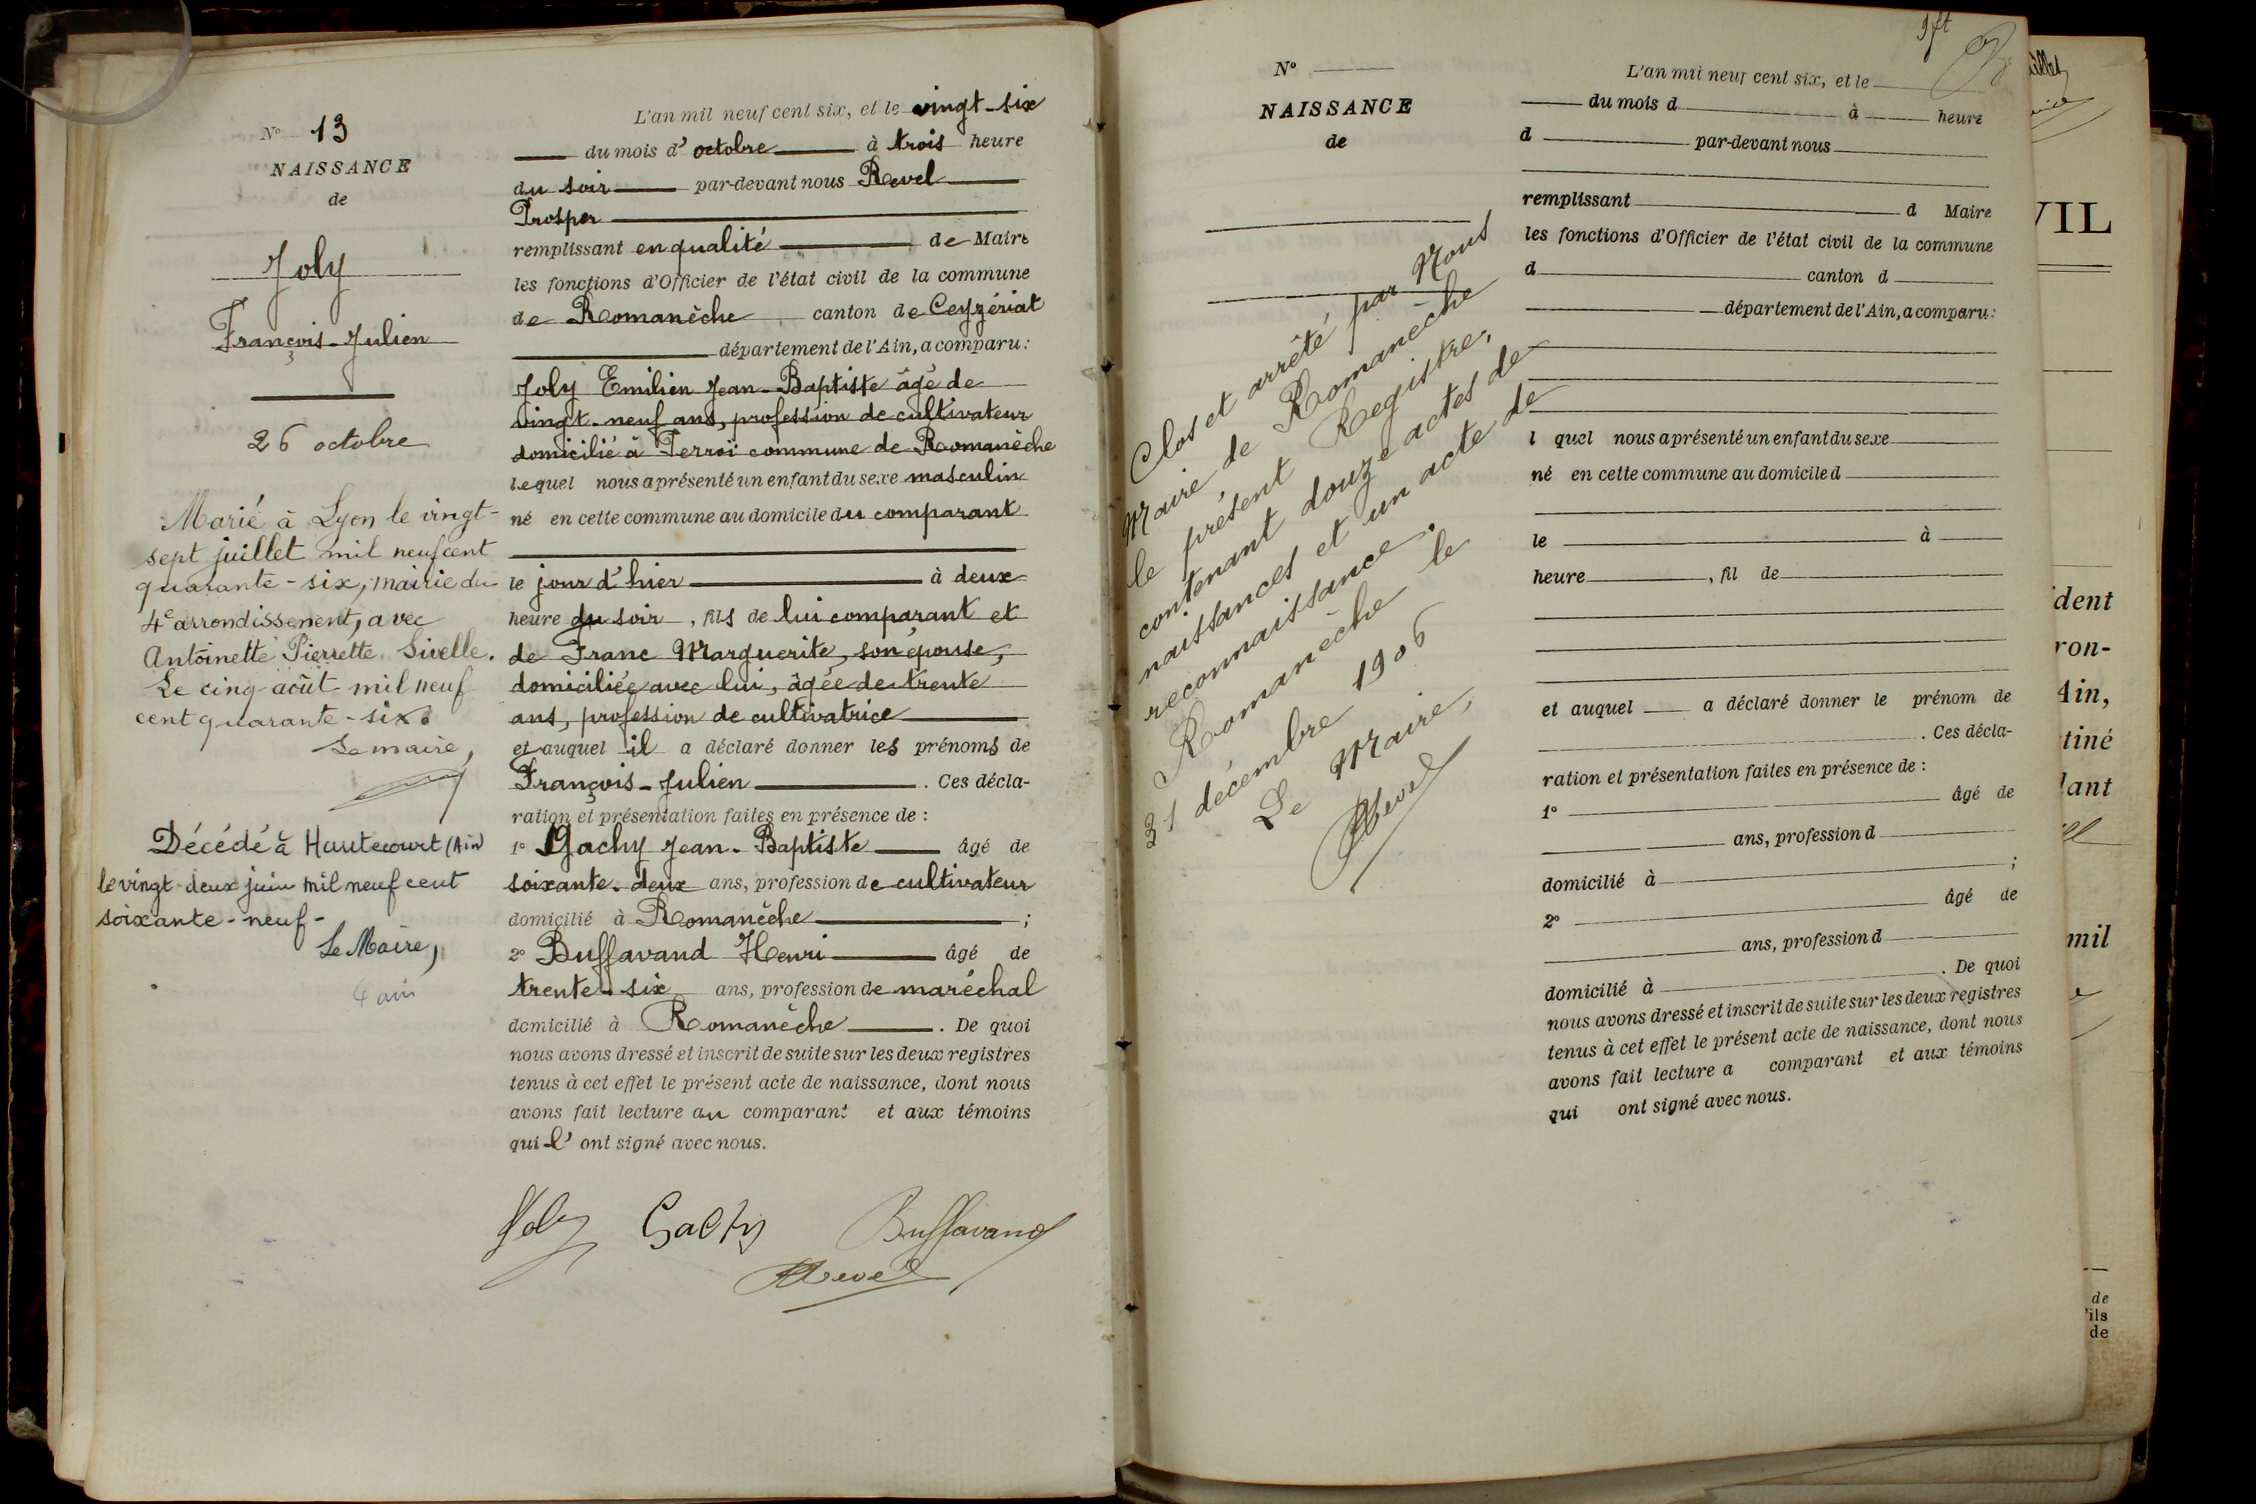 N° 13
NAISSANCE
de
Joly
François-Julien
26 octobre
Marié à Lyon le vingt-
sept juillet mil neuf cent
quarante-six, mairie du
4e arrondissement, avec
Antoinette Pierrette Sivelle.
Le cinq août mil neuf
cent quarante-six.
Le maire,
Décédé à Hautecourt (Ain)
le vingt-deux juin mil neuf cent
soixante-neuf-
Le Maire,
L'an mil neuf cent six, et le vingt-six
du mois d'octobre à trois heure
du soir par-devant nous Revel
Prosper
remplissant en qualité de Maire
les fonctions d'Officier de l'état civil de la commune
de Romanèche canton de Ceyzériat
département de l'Ain, a comparu:
Joly Emilien Jean-Baptiste âgé de
vingt-neuf ans, profession de cultivateur
domicilié à commune de Romanèche
lequel nous a présenté un enfant du sexe masculin
né en cette commune au domicile du comparant
le jour d'hier à deux
heure du soir, fils de lui comparant et
de Franc Marguerite, son épouse,
domiciliée avec lui, âgée de trente
ans, profession de cultivatrice
et auquel il a déclaré donner les prénoms de
François-Julien. Ces décla-
ration et présentation faites en présence de :
1° Gachy Jean-Baptiste âgé de
soixante-deux ans, profession de cultivateur
domicilié à Romanèche ;
2° Buffavand Henri âgé de
trente-six ans, profession de maréchal
domicilié à Romanèche. De quoi
nous avons dressé et inscrit de suite sur les deux registres
tenus à cet effet le présent acte de naissance, dont nous
avons fait lecture au comparant et aux témoins
qui l'ont signé avec nous.
Joly Gachy Buffavand
Revel
N°
NAISSANCE
de
Clos et arrêté par Nous
Maire de Romanèche
le présent Registre,
contenant douze actes de
naissances et un acte de
reconnaissance.
Romanèche le
31 décembre 1906
Le Maire,
Revel
L'an mil neuf cent six, et le
du mois d à heure
d par-devant nous
remplissant d Maire
les fonctions d'Officier de l'état civil de la commune
d canton d
département de l'Ain, a comparu:
l quel nous a présenté un enfant du sexe
né en cette commune au domicile d
le à
heure , fil de
et auquel a déclaré donner le prénom de
. Ces décla-
ration et présentation faites en présence de :
1° âgé de
ans, profession d
domicilié à ;
2° âgé de
ans, profession d
domicilié à . De quoi
nous avons dressé et inscrit de suite sur les deux registres
tenus à cet effet le présent acte de naissance, dont nous
avons fait lecture a comparant et aux témoins
qui ont signé avec nous.
VIL
dent
ron-
Ain,
tiné
lant
mil
de
'ils
de